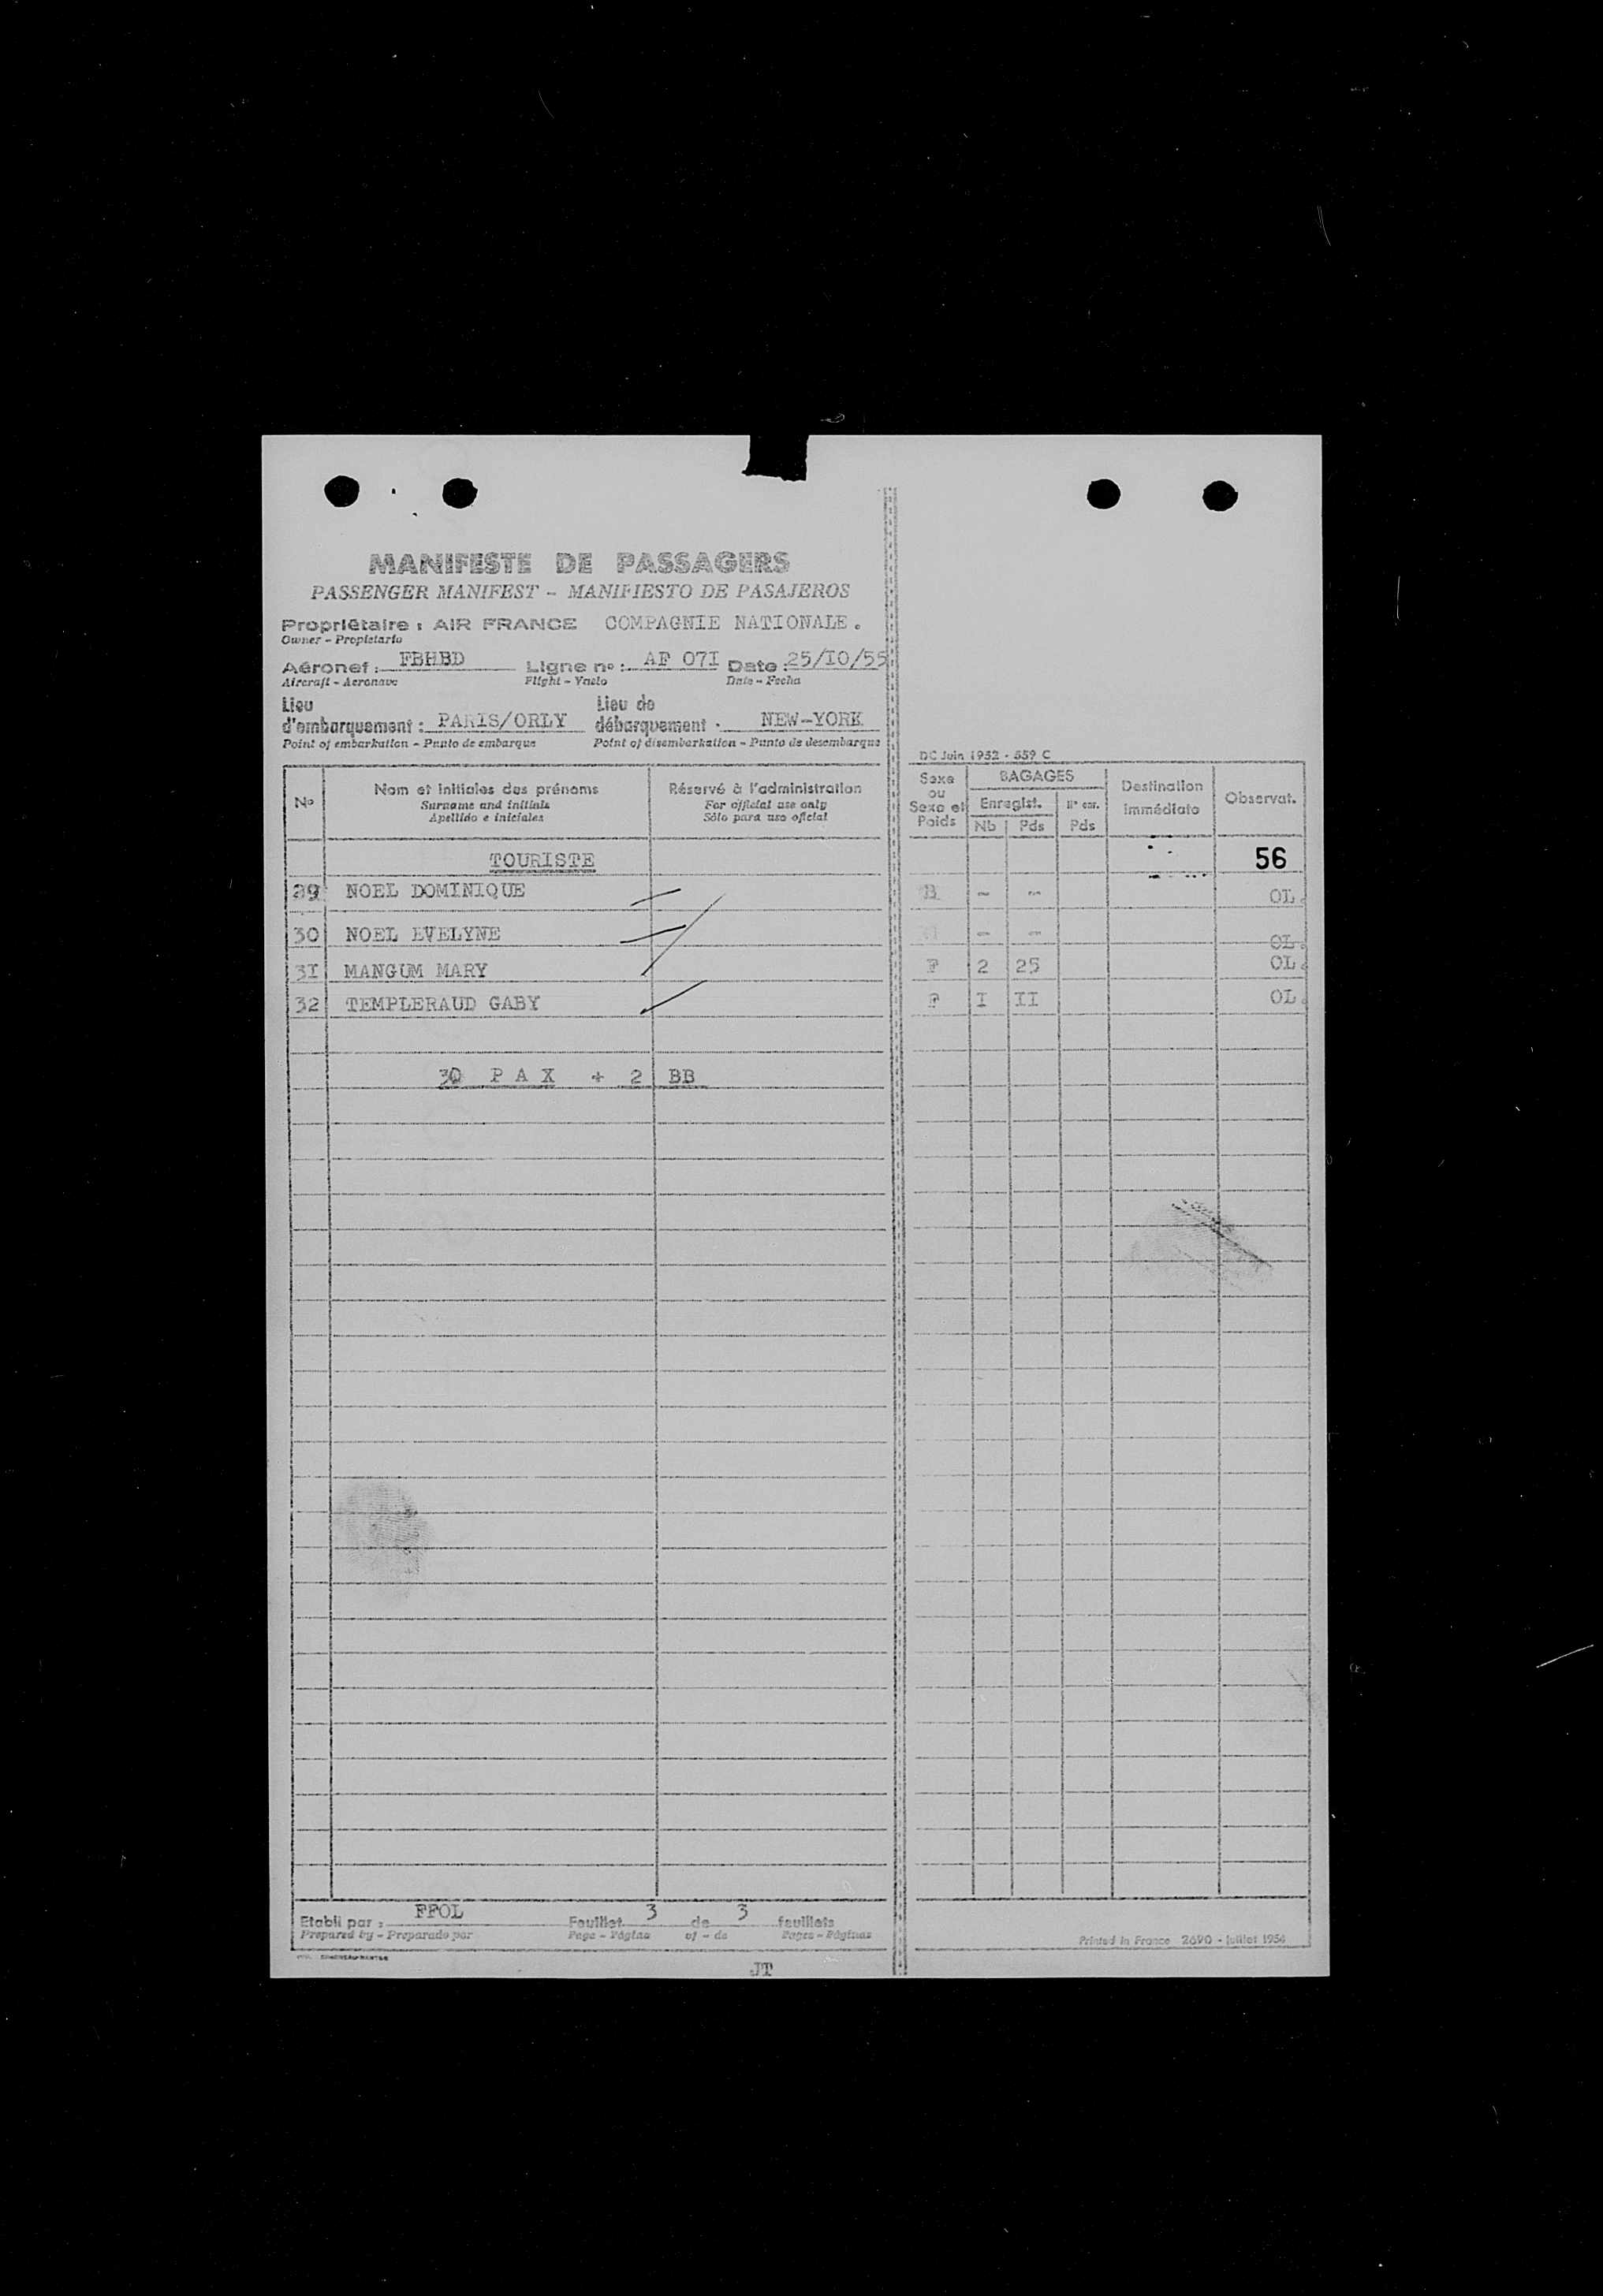 MANIFESTE DE PASSAGERS
PASSENGER MANIFEST - MANIFIESTO DE PASAJEROS
Propriétaire : AIR FRANCE COMPAGNIE NATIONALE.
Owner - Propietario
Aéronef : FBHBD Ligne no : AF 07I Date : 25/IO/55
Aircraft - Aeronave Flight - Vuelo Date - Fecha
Lieu d'embarquement : PARIS/ORLY Lieu de débarquement : NEW-YORK
Point of embarkation - Punto de embarque Point of disembarkation - Punto de desembarque
DC Juin 1952 - 559 C
No Nom et initiales des prénoms Réservé à l'administration Sexe ou Sexe et Poids BAGAGES Destination immédiate Observat.
Surname and initials For official use only Enregist.
Apellido e iniciales Sólo para uso oficial Nb Pds Pds
TOURISTE 56
29 NOEL DOMINIQUE B - - OL.
30 NOEL EVELYNE - - OL.
3I MANGUM MARY F 2 25 OL.
32 TEMPLERAUD GABY F I II OL.
30 P A X + 2 BB
Etabli par : FFOL Feuillet 3 de 3 feuillets
Prepared by - Preparado por Page - Página of - de Pages - Páginas
Printed in France 2690 - Juillet 1954
JT